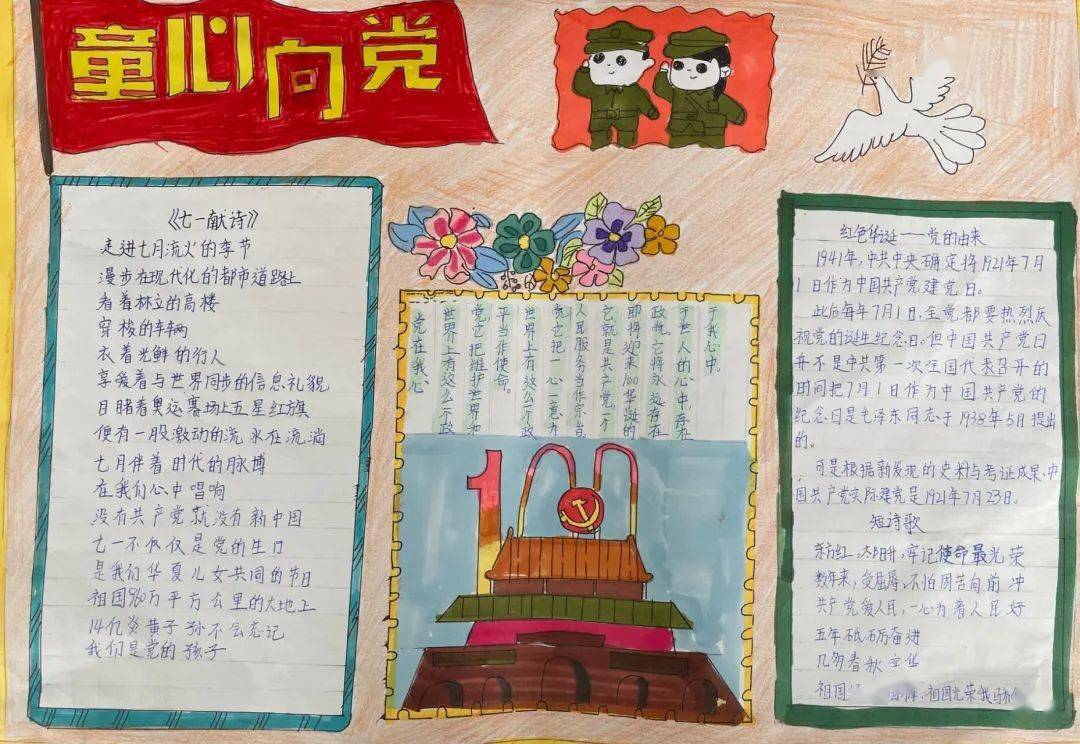 童心向党
《七一献诗》
走进七月流火的季节
漫步在现代化的都市道路上
看着林立的高楼
穿梭的车辆
衣着光鲜的行人
享爱着与世界同步的信息礼貌
目睹着奥运赛场上五星红旗
便有一股激动的流水在流淌
七月伴着时代的脉博
在我们心中唱响
没有共产党就没有新中国
七一不仅仅是党的生日
是我们华夏儿女共同的节日
祖国960万平方公里的大地上
14亿炎黄子孙不会忘记
我们是党的孩子
党在我心
世界上有这么一个政
党它把维护世界和
平当作使命。
世界上有这么一个政
党它把一心一意为
人民服务当作宗旨
它就是共产党一个
即将迎来100华诞的
政党它将永远存在
于世人的心中,存在
于我心中。
红色华诞——党的由来
1941年,中共中央确定将1921年7月
1日作为中国共产党建党日。
此后每年7月1日,全党都要热烈庆
祝党的诞生纪念日。但中国共产党日
并不是中共第一次全国代表召开的
时间把7月1日作为中国共产党的
纪念日是毛泽东同志于1938年5月提出
的。
可是根据新发现的史料与考证成果、中
国共产党实际建党是1921年7月23日。
短诗歌
东方红,太阳升,牢记使命最光荣
数年来,受屈辱,不怕困苦向前冲
共产党爱人民,一心为着人民好
五年砥砺奋进
几多春秋
祖国
祖国光荣我